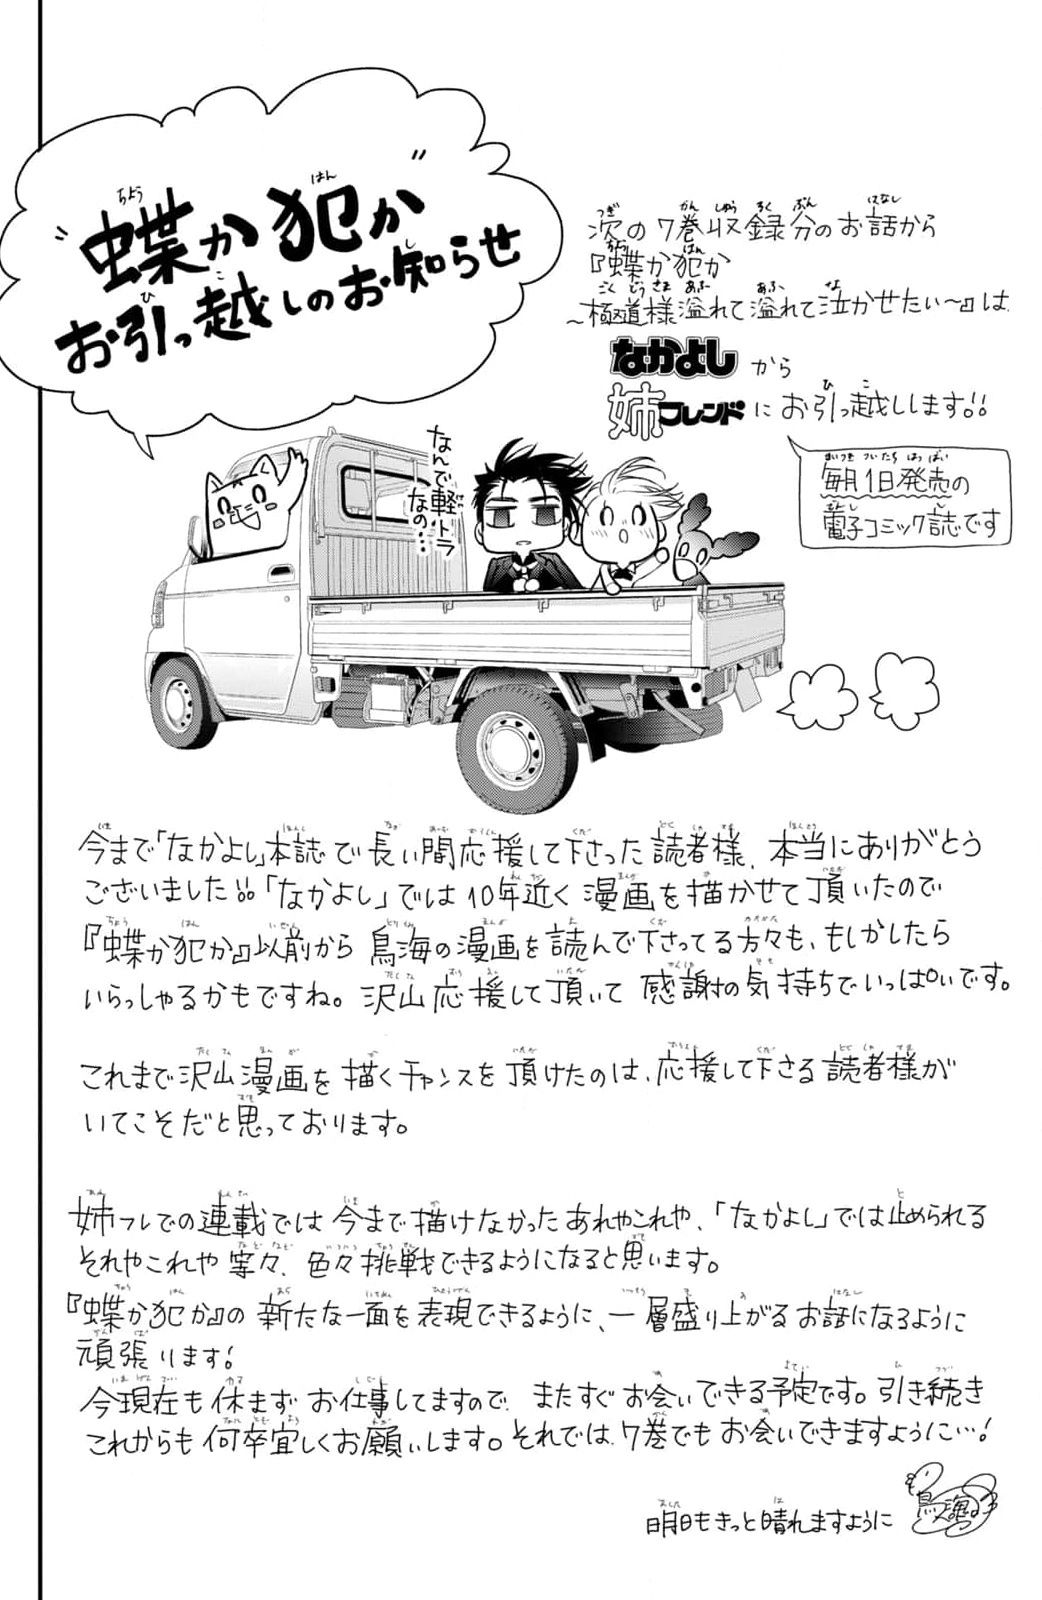 "蝶か犯か"
お引っ越しのお知らせ
次の7巻収録分のお話から
『蝶か犯か
～極道様溢れて溢れて泣かせたい～』は
なかよしから
姉フレンドにお引っ越しします!!
毎月1日発売の
電子コミック誌です
なんで軽トラ
なの…
今まで「なかよし」本誌で長い間応援して下さった読者様、本当にありがとう
ございました!!「なかよし」では10年近く漫画を描かせて頂いたので
『蝶か犯か』以前から鳥海の漫画を読んで下さってる方々も、もしかしたら
いらっしゃるかもですね。沢山応援して頂いて感謝の気持ちでいっぱいです。
これまで沢山漫画を描くチャンスを頂けたのは、応援して下さる読者様が
いてこそだと思っております。
姉フレでの連載では今まで描けなかったあれやこれや、「なかよし」では止められる
それやこれや等々、色々挑戦できるようになると思います。
『蝶か犯か』の新たな一面を表現できるように、一層盛り上がるお話になるように
頑張ります!
今現在も休まずお仕事してますので、またすぐお会いできる予定です。引き続き
これからも何卒宜しくお願いします。それでは、7巻でもお会いできますように…!
明日もきっと晴れますように